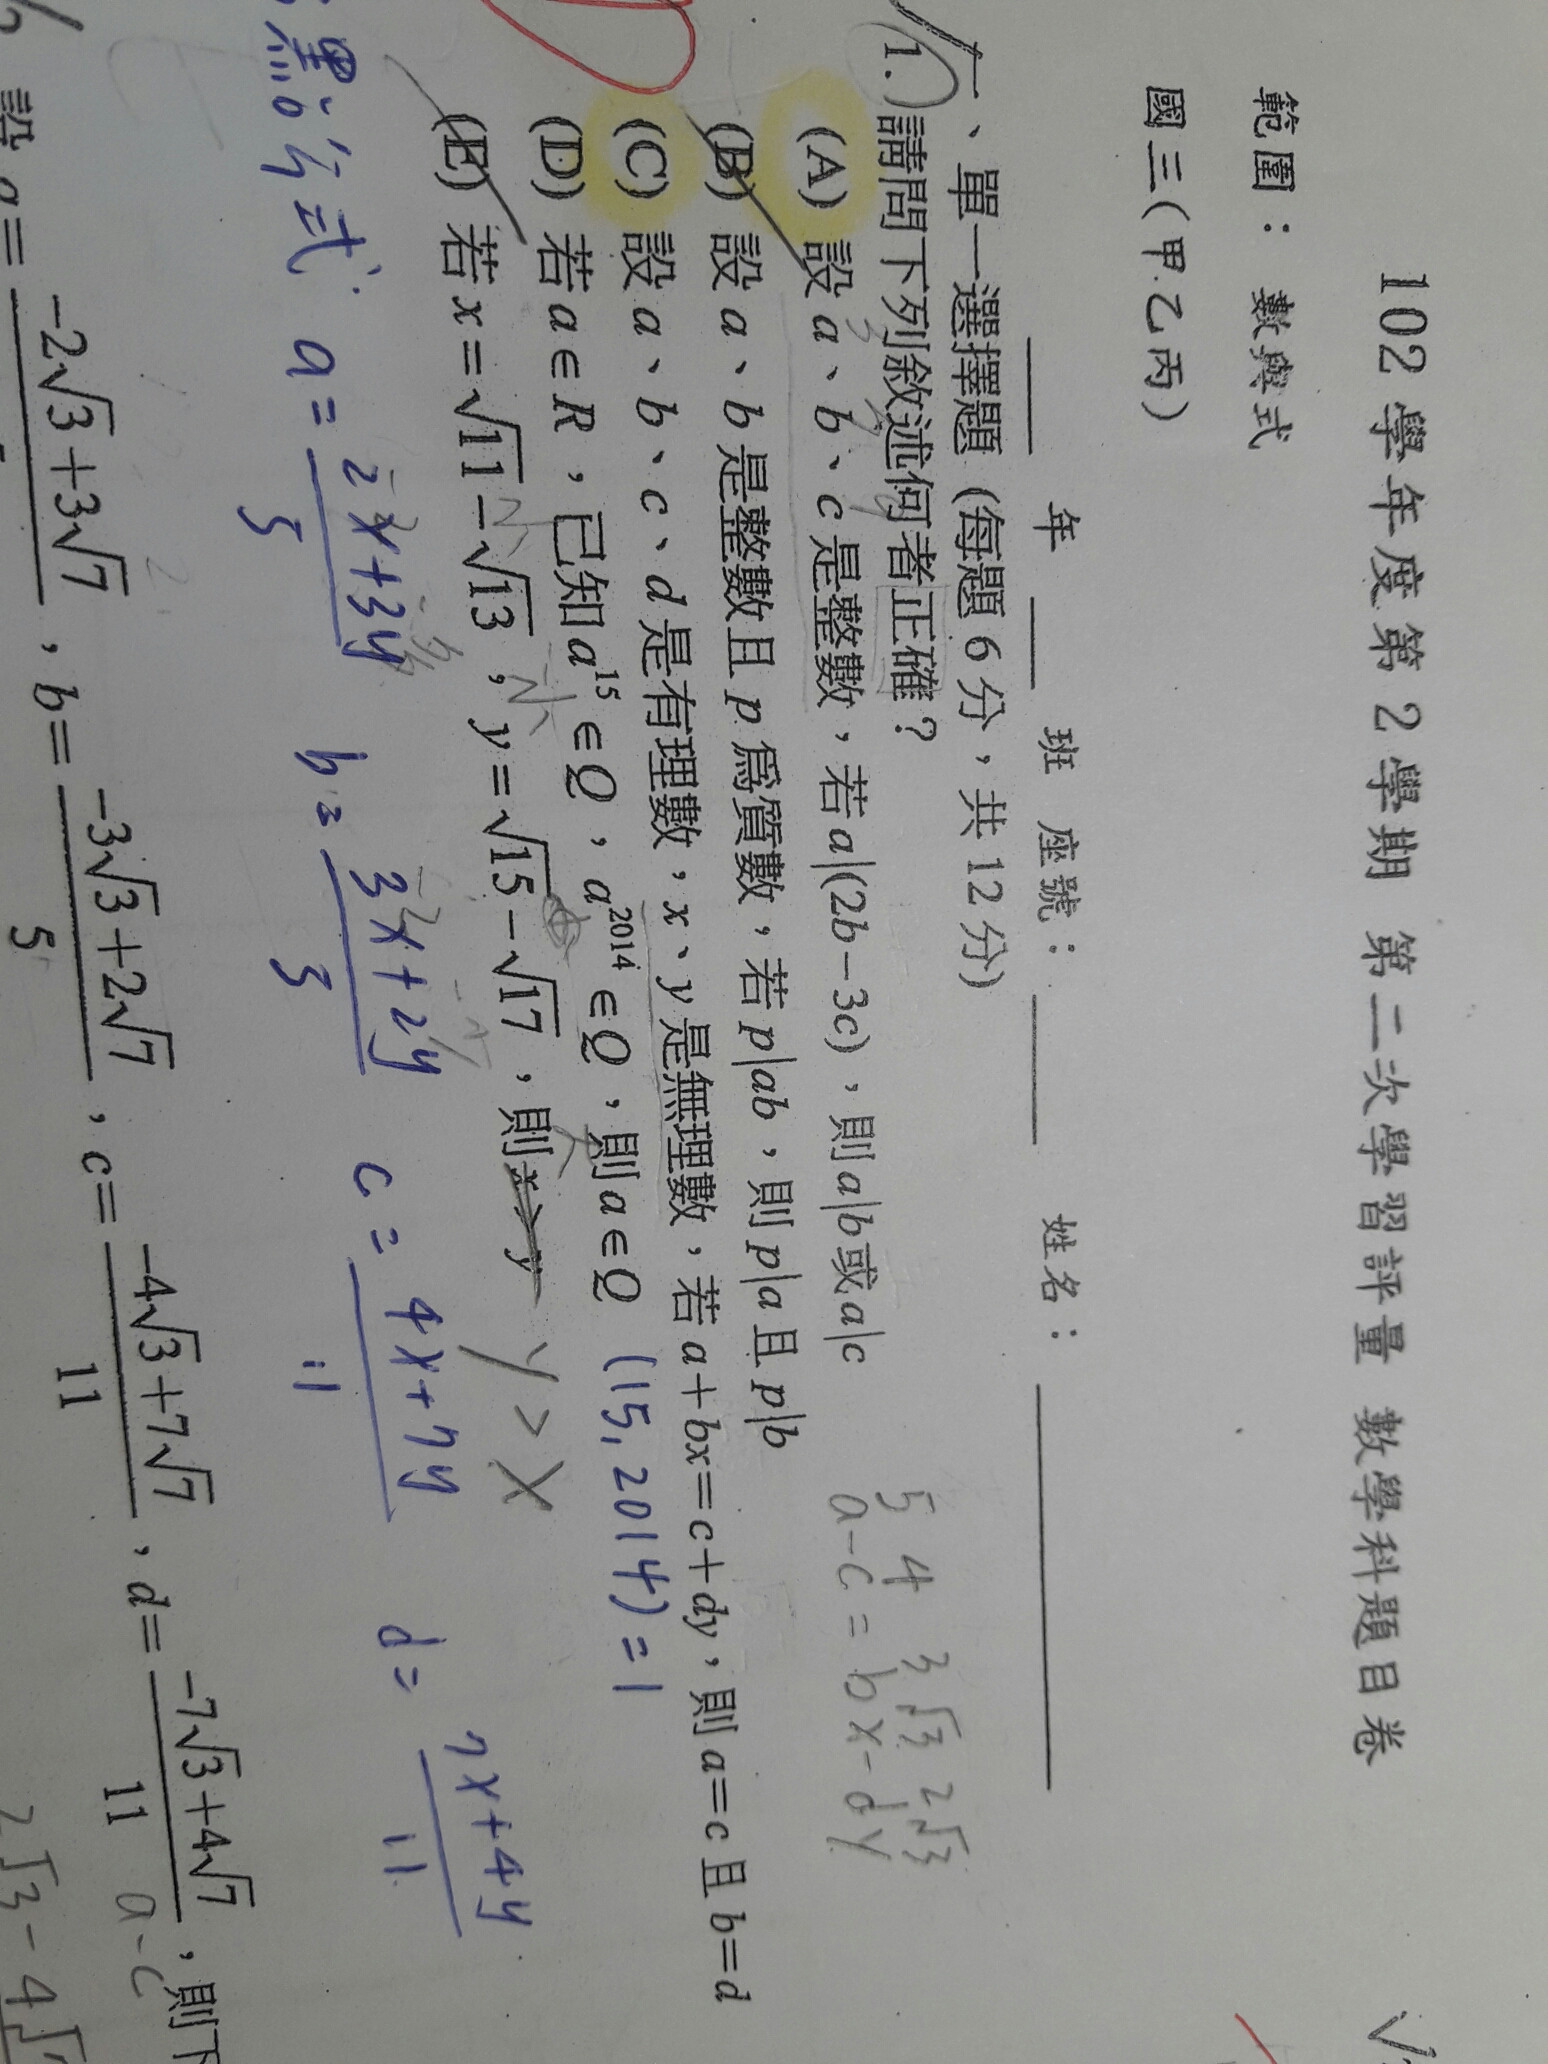 102 學年度第 2 學期 第二次學習評量 數學科題目卷
範圍：數與式
國三(甲乙丙)
年 班 座號： 姓名：
一、單一選擇題 (每題 6 分，共 12 分)
1. 請問下列敘述何者正確？
5 4 3√3 2√3
a-c = bx-dy
(A) 設 a、b、c 是整數，若 a|(2b−3c)，則 a|b 或 a|c
(B) 設 a、b 是整數且 p 為質數，若 p|ab，則 p|a 且 p|b
(C) 設 a、b、c、d 是有理數，x、y 是無理數，若 a+bx=c+dy，則 a=c 且 b=d
(D) 若 a∈R，已知 a¹⁵∈Q，a²⁰¹⁴∈Q，則 a∈Q (15,2014)=1
(E) 若 x=√11−√13，y=√15−√17，則 x>y y>x
a= b= c= 4x+7y/11 d= 7x+4y/11
設 a= −2√3+3√7 ，b= −3√3+2√7/5 ，c= −4√3+7√7/11 ，d= −7√3+4√7/11 ，則下
a-c